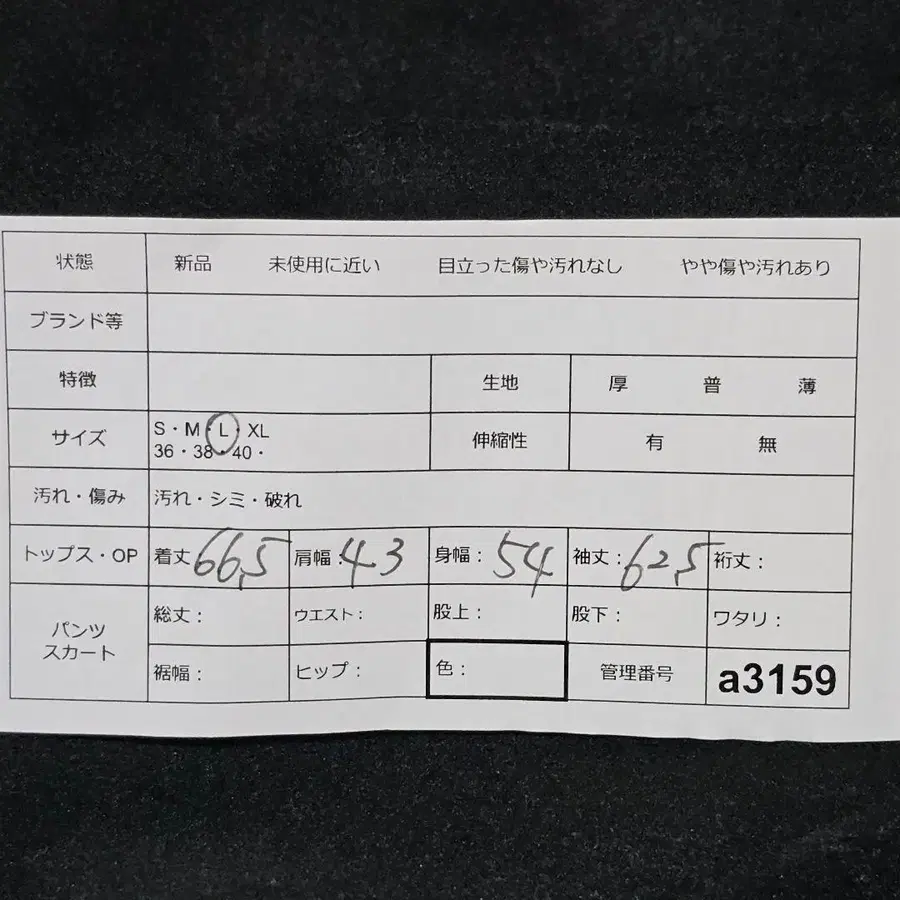 状態 新品 未使用に近い 目立った傷や汚れなし やや傷や汚れあり
ブランド等
特徴 生地 厚 普 薄
サイズ S・M・L・XL
36・38・40・
伸縮性 有 無
汚れ・傷み 汚れ・シミ・破れ
トップス・OP 着丈:66,5 肩幅:43 身幅:54 袖丈:62,5 裄丈:
パンツ
スカート
総丈: ウエスト: 股上: 股下: ワタリ:
裾幅: ヒップ: 色: 管理番号 a3159